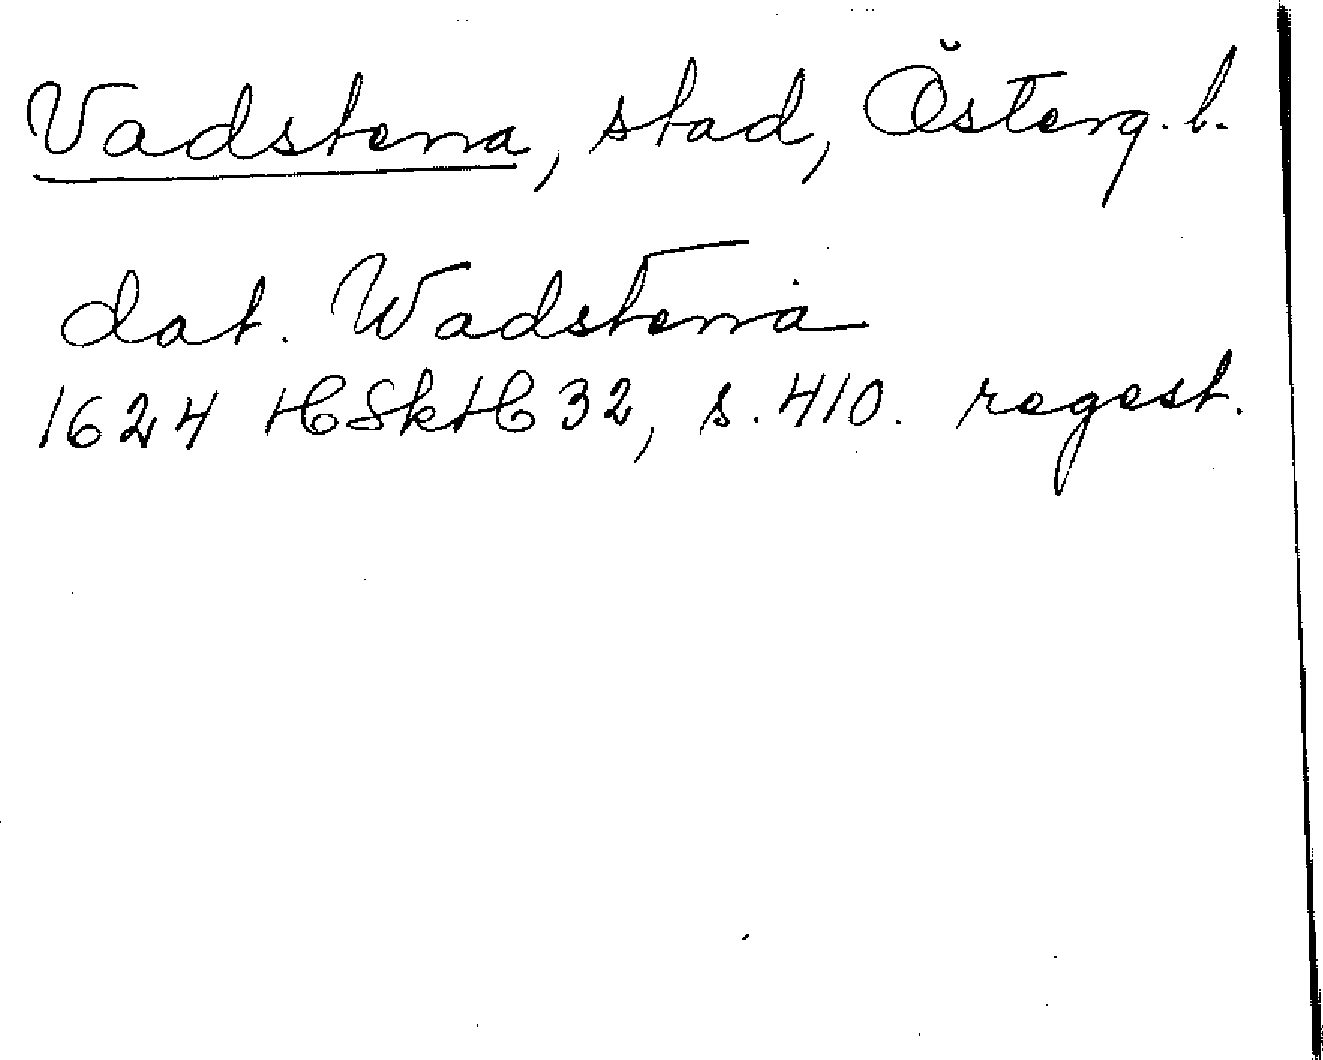 Vadstena, stad, Österg. l.
dat. Wadstena
1624 HSkH 32, s. 410. regest.